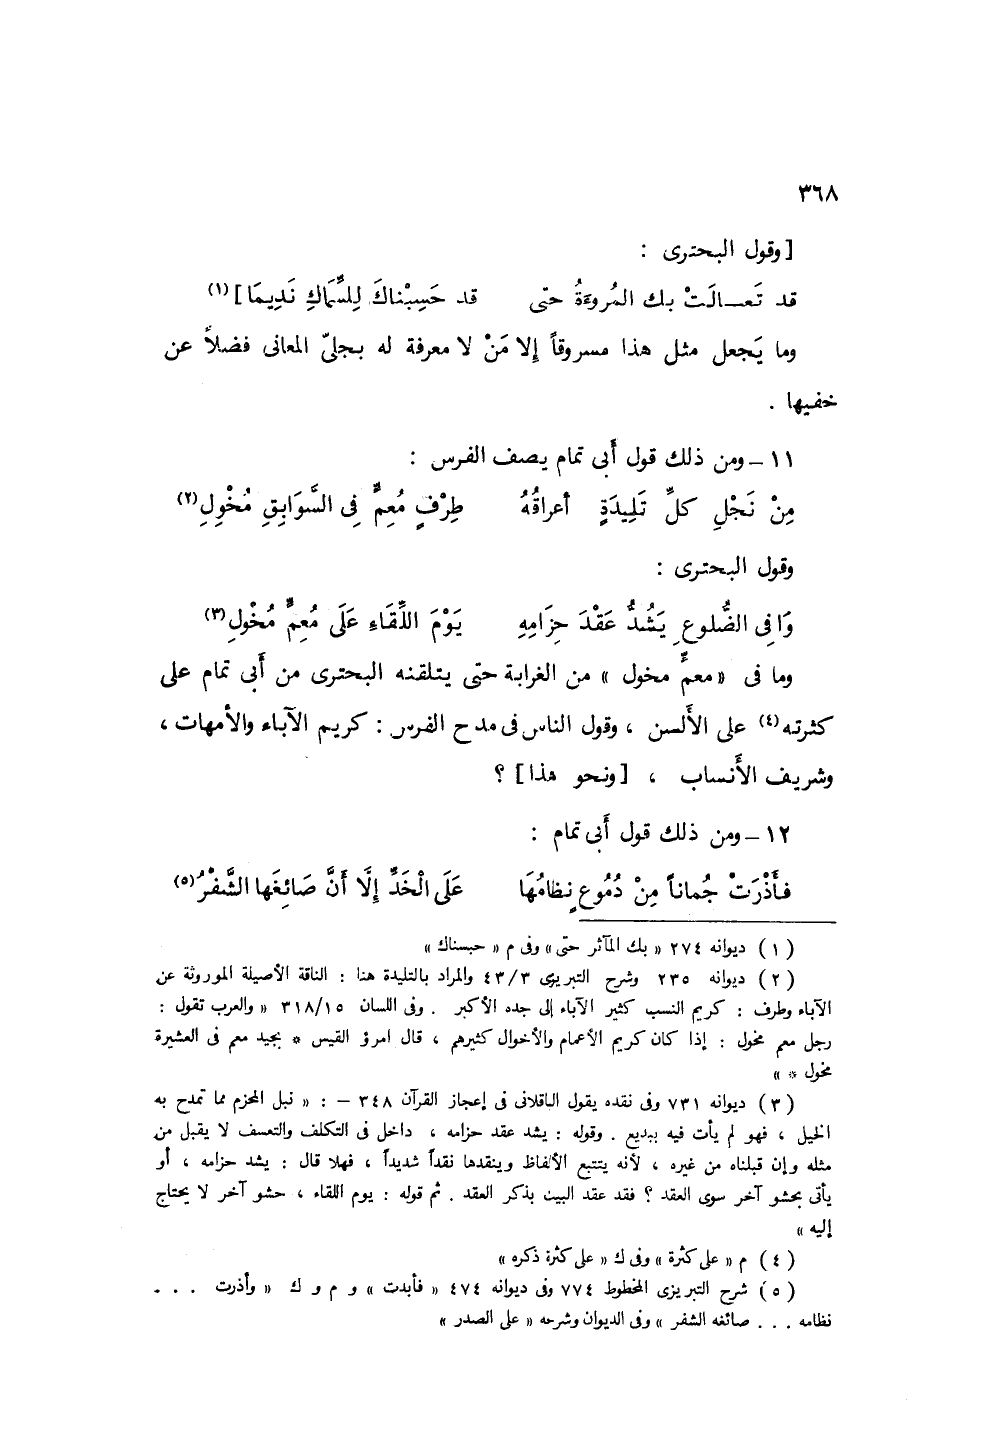 ٣٦٨
[ وقول البحترى :
قد تَعـالَتْ بك المُروءَةُ حتى قد حَسِبْناكَ لِلسِّمَاكِ نَدِيمَا ] (١)
وما يَجعل مثل هذا مسروقاً إلا مَنْ لا معرفة له بجلىّ المعانى فضلاً عن
خفيها .
١١ – ومن ذلك قول أَبى تمام يصف الفرس :
مِنْ نَجْلِ كلِّ تَلِيدَةٍ أعراقُهُ طِرْفٍ مُعِمٍّ فِى السَّوَابِقِ مُخْوِلِ (٢)
وقول البحترى :
وَافِى الضُّلوعِ يَشُدُّ عَقْدَ حِزَامِهِ يَوْمَ اللِّقَاءِ عَلَى مُعِمٍّ مُخْوِلِ (٣)
وما فى « معمٍّ مخول » من الغرابة حتى يتلقنه البحترى من أَبى تمام على
كثرته (٤) على الأَلسن ، وقول الناس فى مدح الفرس : كريم الآباء والأمهات ،
وشريف الأَنساب ، [ ونحو هذا ] ؟
١٢ – ومن ذلك قول أَبى تمام :
فأَذْرَتْ جُماناً مِنْ دُمُوعٍ نِظامُهَا عَلَى الْخَدِّ إِلَّا أَنَّ صَائِغَها الشَّفْرُ (٥)
( ١ ) ديوانه ٢٧٤ « بك المآثر حتى » وفى م « حبسناك »
( ٢ ) ديوانه ٢٣٥ وشرح التبريزى ٤٣/٣ والمراد بالتليدة هنا : الناقة الأصيلة الموروثة عن
الآباء وطرف : كريم النسب كثير الآباء إلى جده الأكبر . وفى اللسان ٣١٨/١٥ « والعرب تقول :
رجل معم مخول : إذا كان كريم الأعمام والأخوال كثيرهم ، قال امرؤ القيس * بجيد معم فى العشيرة
مخول * »
( ٣ ) ديوانه ٧٣١ وفى نقده يقول الباقلانى فى إعجاز القرآن ٣٤٨ – : « نبل المحزم مما تمدح به
الخيل ، فهو لم يأت فيه ببديع . وقوله : يشد عقد حزامه ، داخل فى التكلف والتعسف لا يقبل من
مثله وإن قبلناه من غيره ، لأنه يتتبع الألفاظ وينقدها نقداً شديداً ، فهلا قال : يشد حزامه ، أو
يأتى بحشو آخر سوى العقد ؟ فقد عقد البيت بذكر العقد . ثم قوله : يوم اللقاء ، حشو آخر لا يحتاج
إليه »
( ٤ ) م « على كثرة » وفى ك « على كثرة ذكره »
( ٥ ) شرح التبريزى المخطوط ٧٧٤ وفى ديوانه ٤٧٤ « فأبدت » و م و ك « وأذرت . . .
نظامه . . . صائغه الشفر » وفى الديوان وشرحه « على الصدر »